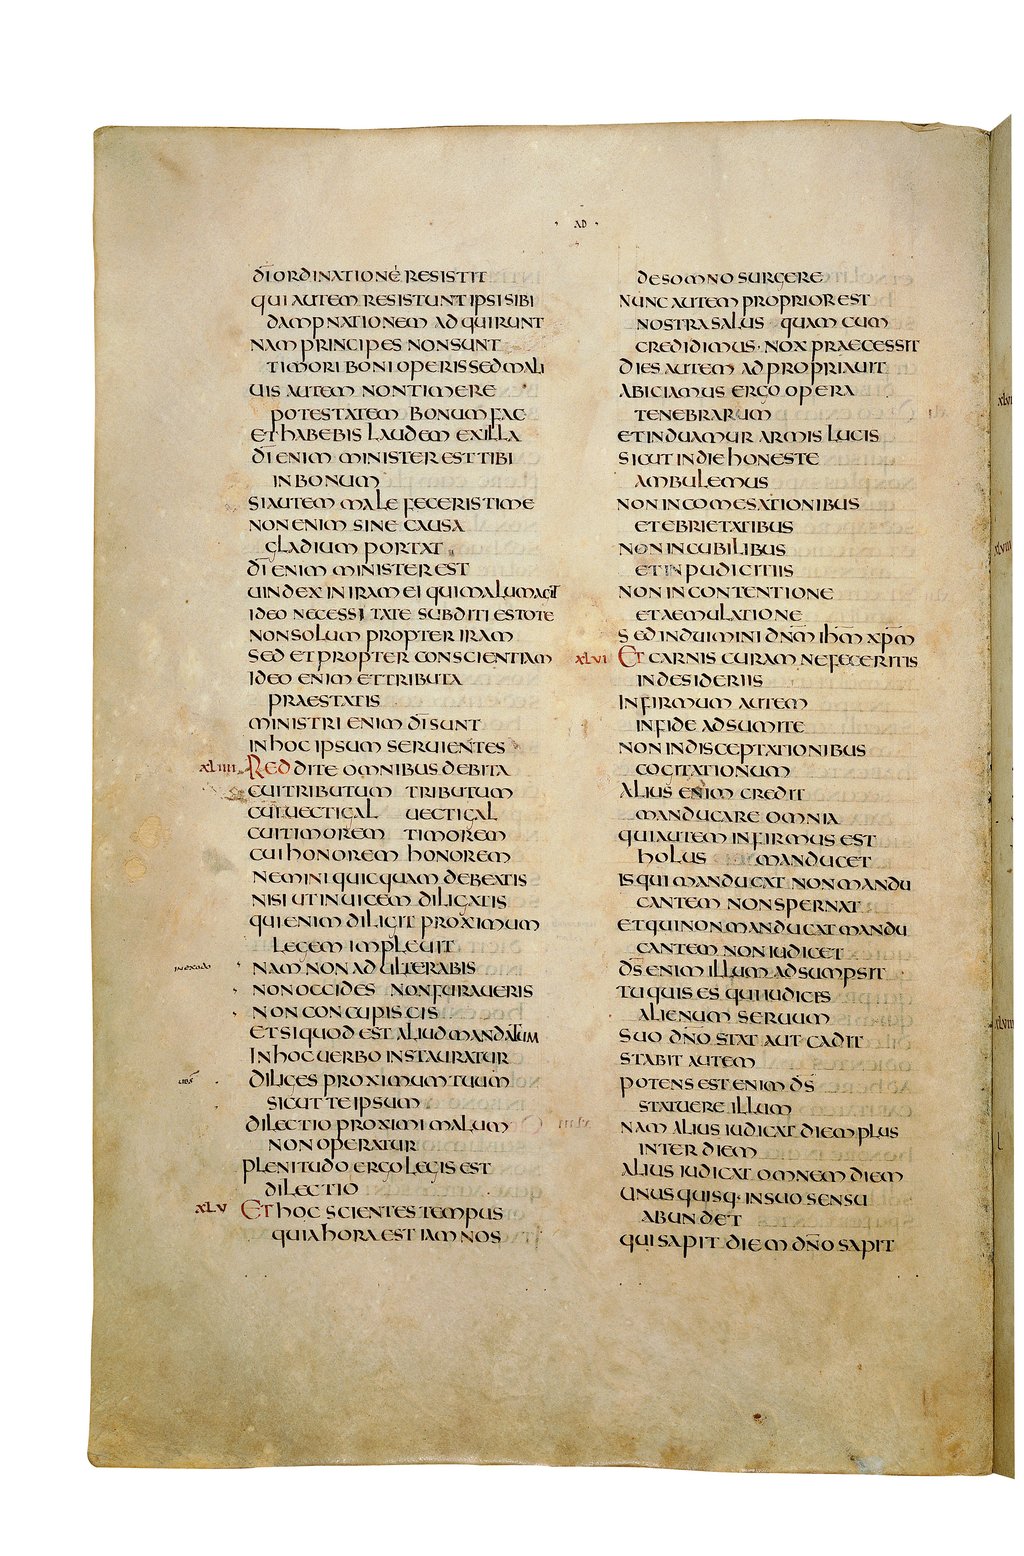 · AD ·
DI̅ ORDINATIONE RESISTIT
QUI AUTEM RESISTUNT IPSI SIBI
DAMPNATIONEM ADQUIRUNT
NAM PRINCIPES NON SUNT
TIMORI BONI OPERIS SED MALI
UIS AUTEM NON TIMERE
POTESTATEM BONUM FAC
ET HABEBIS LAUDEM EX ILLA
DI̅ ENIM MINISTER EST TIBI
IN BONUM
SI AUTEM MALE FECERIS TIME
NON ENIM SINE CAUSA
GLADIUM PORTAT
DI̅ ENIM MINISTER EST
UINDEX IN IRAM EI QUI MALUM AGIT
IDEO NECESSITATE SUBDITI ESTOTE
NON SOLUM PROPTER IRAM
SED ET PROPTER CONSCIENTIAM
IDEO ENIM ET TRIBUTA
PRAESTATIS
MINISTRI ENIM DI̅ SUNT
IN HOC IPSUM SERUIENTES
XLIIII REDDITE OMNIBUS DEBITA
CUI TRIBUTUM TRIBUTUM
CUI UECTIGAL UECTIGAL
CUI TIMOREM TIMOREM
CUI HONOREM HONOREM
NEMINI QUICQUAM DEBEATIS
NISI UT INUICEM DILIGATIS
QUI ENIM DILIGIT PROXIMUM
LEGEM IMPLEUIT
NAM NON ADULTERABIS
NON OCCIDES NON FURAUERIS
NON CONCUPISCIS
ET SI QUOD EST ALIUD MANDATUM
IN HOC UERBO INSTAURATUR
DILIGES PROXIMUM TUUM
SICUT TE IPSUM
DILECTIO PROXIMI MALUM
NON OPERATUR
PLENITUDO ERGO LEGIS EST
DILECTIO
XLV ET HOC SCIENTES TEMPUS
QUIA HORA EST IAM NOS
DE SOMNO SURGERE
NUNC AUTEM PROPRIOR EST
NOSTRA SALUS QUAM CUM
CREDIDIMUS · NOX PRAECESSIT
DIES AUTEM ADPROPRIAUIT
ABICIAMUS ERGO OPERA
TENEBRARUM
ET INDUAMUR ARMIS LUCIS
SICUT IN DIE HONESTE
AMBULEMUS
NON IN COMESATIONIBUS
ET EBRIETATIBUS
NON IN CUBILIBUS
ET INPUDICITIIS
NON IN CONTENTIONE
ET AEMULATIONE
SED INDUIMINI DN̅M IHM̅ XPM̅
XLVI ET CARNIS CURAM NE FECERITIS
IN DESIDERIIS
INFIRMUM AUTEM
IN FIDE ADSUMITE
NON IN DISCEPTATIONIBUS
COGITATIONUM
ALIUS ENIM CREDIT
MANDUCARE OMNIA
QUI AUTEM INFIRMUS EST
HOLUS MANDUCET
IS QUI MANDUCAT NON MANDU
CANTEM NON SPERNAT
ET QUI NON MANDUCAT MANDU
CANTEM NON IUDICET
DS̅ ENIM ILLUM ADSUMPSIT
TU QUIS ES QUI IUDICES
ALIENUM SERUUM
SUO DN̅O STAT AUT CADIT
STABIT AUTEM
POTENS EST ENIM DS̅
STATUERE ILLUM
NAM ALIUS IUDICAT DIEM PLUS
INTER DIEM
ALIUS IUDICAT OMNEM DIEM
UNUS QUISQ· IN SUO SENSU
ABUNDET
QUI SAPIT DIEM DN̅O SAPIT